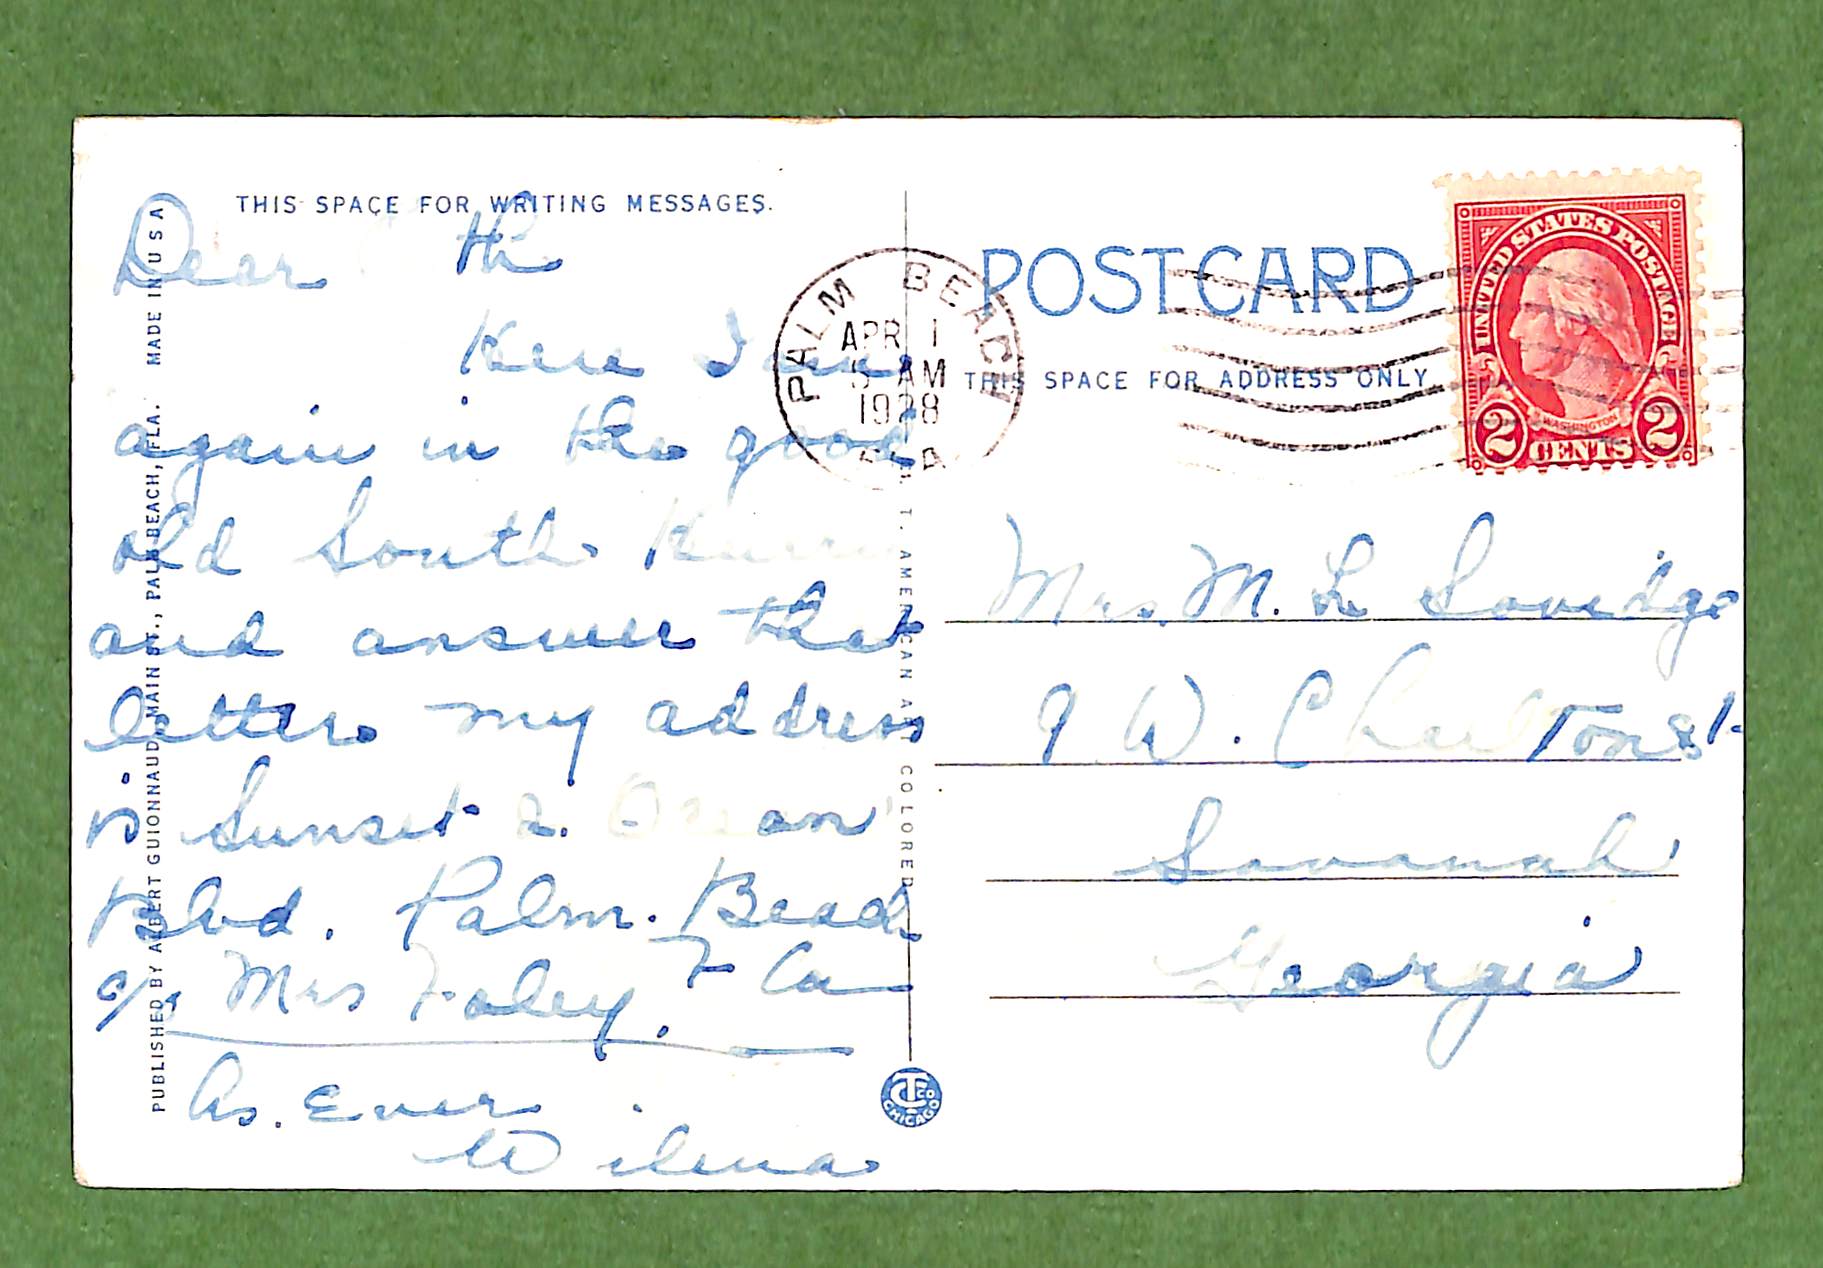 THIS SPACE FOR WRITING MESSAGES.
Dear
Here I am
again in the good
old South Hurry
and answer that
letter my address
is Sunset & Ocean
Blvd. Palm. Beach
c/o Mrs Foley. Fla
As. Ever.
Wilma
PUBLISHED BY ALBERT GUIONNAUD, MAIN ST., PALM BEACH, FLA. MADE IN USA
C. T. AMERICAN ART COLORED
POST CARD
THIS SPACE FOR ADDRESS ONLY
PALM BEACH
APR 1
5 AM
1928
FLA
UNITED STATES POSTAGE
WASHINGTON
2 CENTS 2
Mrs. M. L Sovidge
9 W. Charlton St.
Savanah
Georgia
CT CO
CHICAGO